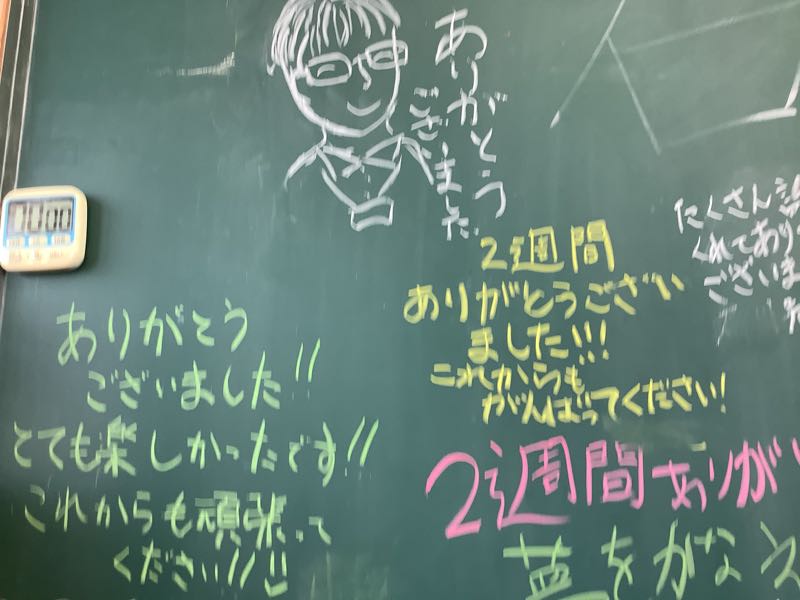 ありがとう
ございました
2週間
ありがとうござい
ました!!!
これからも
がんばってください!
たくさん
くれてあり
ございま
ありがとう
ございました!!
とても楽しかったです!!
これからも頑張って
ください!!!!
2週間ありがい
をかなえ